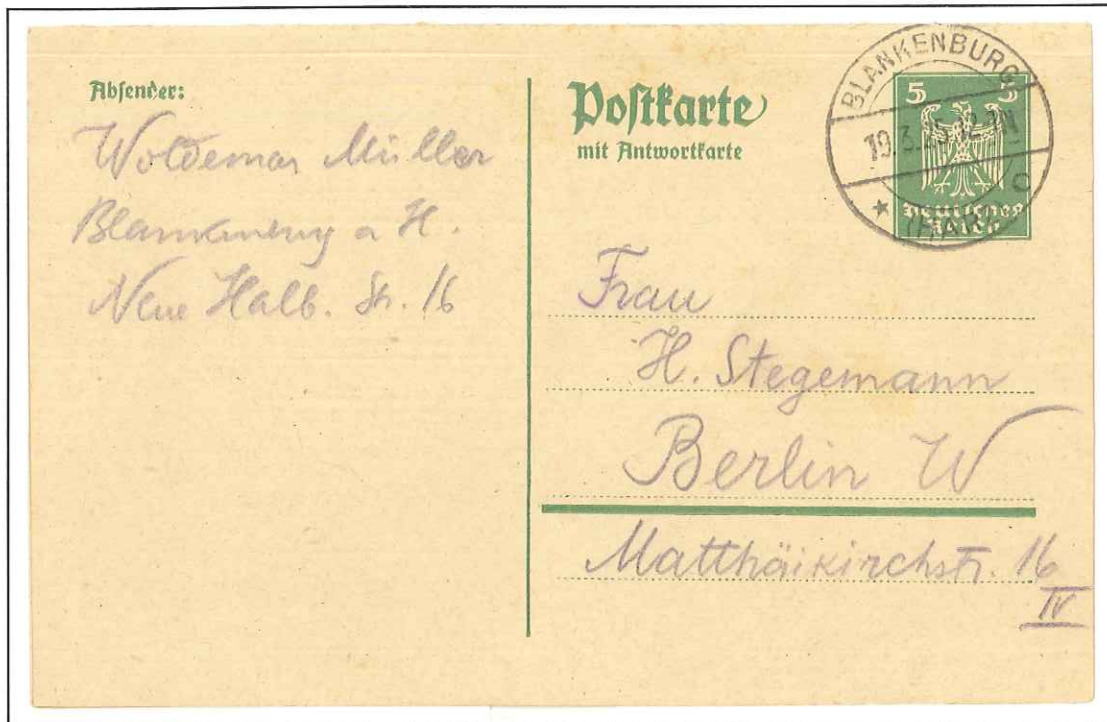 Absender:
Woldemar Müller
Blankenburg a H.
Neue Halb. Str. 16
Postkarte
mit Antwortkarte
BLANKENBURG
19.3.25.12-1N
* (HARZ) c
5 5
Deutsches
Reich
Frau
H. Stegemann
Berlin W
Matthäikirchstr. 16
IV